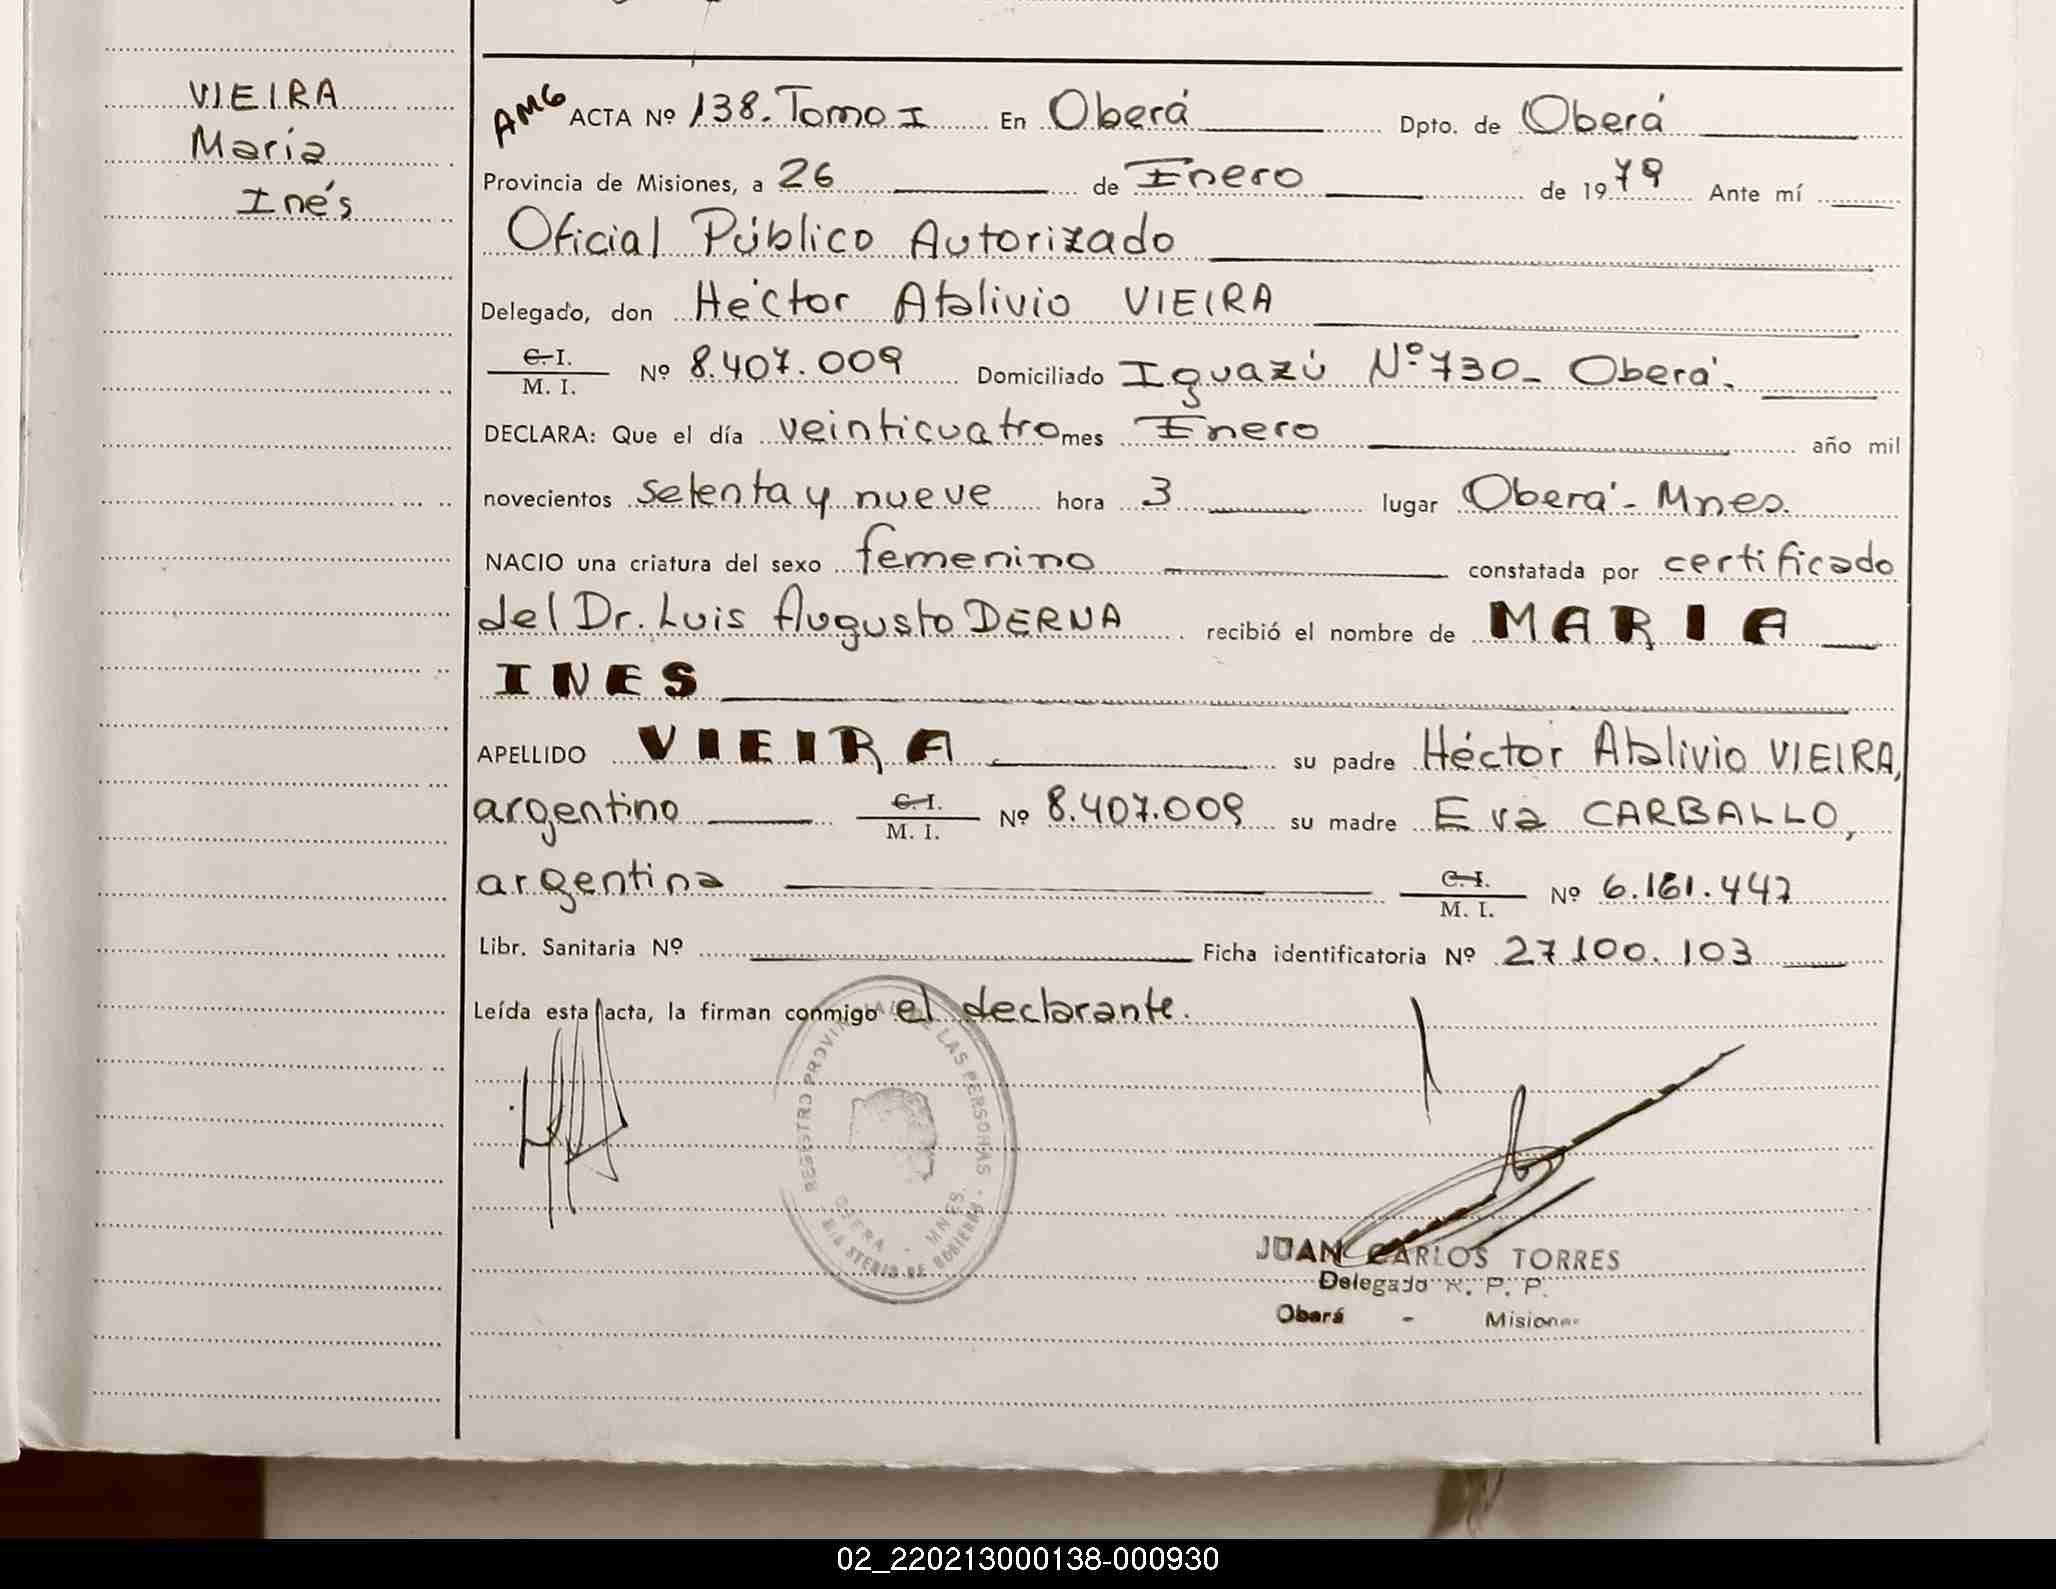 VIEIRA
María
Inés
AMG ACTA Nº 138. Tomo I En Oberá Dpto. de Oberá
Provincia de Misiones, a 26 de Enero de 1979 Ante mí
Oficial Público Autorizado
Delegado, don Héctor Atalivio VIEIRA
C. I.
M. I. Nº 8.407.009 Domiciliado Iguazú Nº 730- Oberá.
DECLARA: Que el día veinticuatro mes Enero año mil
novecientos setenta y nueve hora 3 lugar Oberá - Mnes.
NACIO una criatura del sexo femenino constatada por certificado
del Dr. Luis Augusto DERNA recibió el nombre de MARIA
INES
APELLIDO VIEIRA su padre Héctor Atalivio VIEIRA,
argentino C. I. M. I. Nº 8.407.009 su madre Eva CARBALLO,
argentina C. I. M. I. Nº 6.161.447
Libr. Sanitaria Nº Ficha identificatoria Nº 27100.103
Leída esta acta, la firman conmigo el declarante.
REGISTRO PROVINCIAL DE LAS PERSONAS
OBERA - MNES.
MINISTERIO DE GOBIERNO
JUAN CARLOS TORRES
Delegado R. P. P.
Oberá - Misiones
02_220213000138-000930